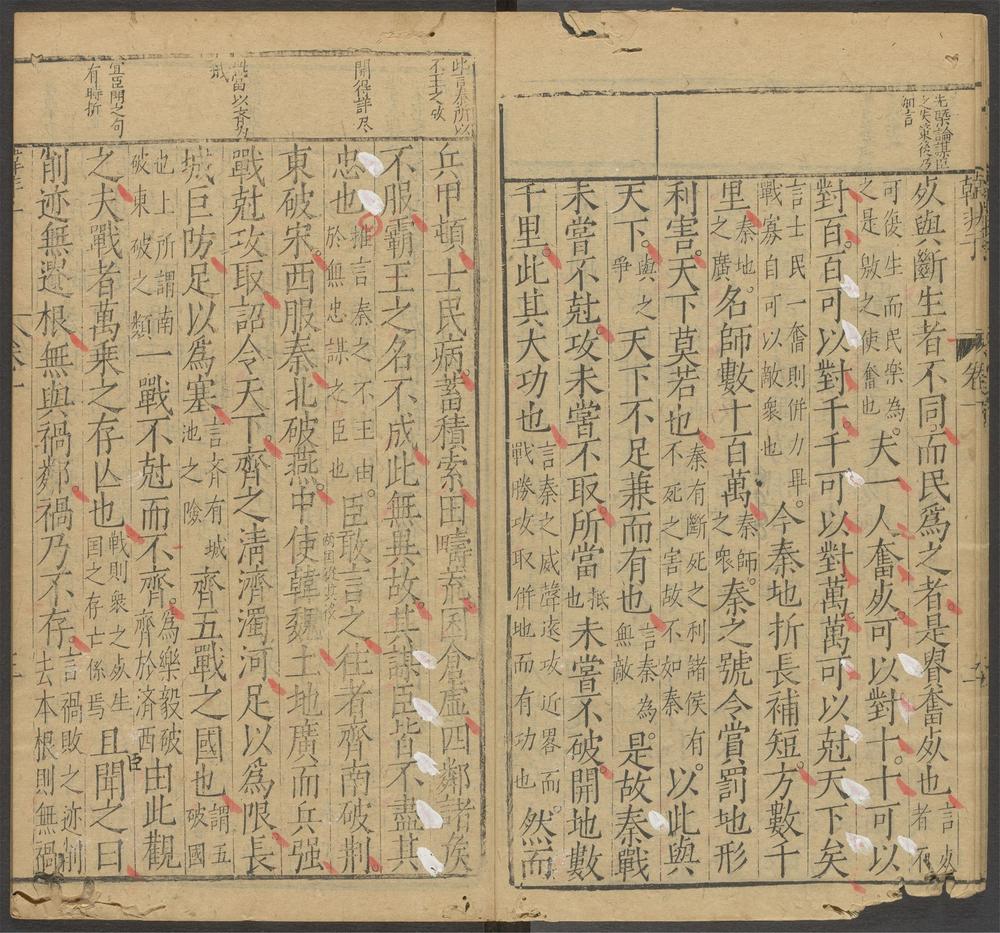 先槩論謀臣
之失策後乃
細言
韓非子
卷一
死與斷生者不同而民爲之者是貴奮死也言死者不
可復生而民樂為之是斆之使奮也夫一人奮死可以對十十可以
對百百可以對千千可以對萬萬可以尅天下矣
言士民一奮則併力畢戰寡自可以敵衆也今秦地折長補短方數千
里秦地之廣名師數十百萬秦師之衆秦之號令賞罰地形
利害天下莫若也秦有斷死之利諸侯有不死之害故不如秦以此與
天下與之爭天下不足兼而有也言秦為無敵是故秦戰
未嘗不尅攻未嘗不取所當抵也未嘗不破開地數
千里此其大功也言秦之威聲遠攻近畧而戰勝攻取併地而有功也然而
此言秦所以
不王之故
開從詳尽
當以斉為
戒
宜臣聞之句
有時折
兵甲頓士民病蓄積索田疇荒囷倉虛四鄰諸侯
不服霸王之名不成此無異故其謀臣皆不盡其
忠也推言秦之不王由於無忠謀之臣也臣敢言之往者齊南破荆
東破宋西服秦北破燕中使韓魏两国從其役土地廣而兵强
戰尅攻取詔令天下齊之淸濟濁河足以爲限長
城巨防足以爲塞言斉有城池之險齊五戰之國也謂五破國
也上所謂南破東破之類一戰不尅而不齊為樂毅破齊於済西由此觀
之夫戰者萬乘之存亾也戦則衆之死生国之存亡係焉且臣聞之曰
削迹無遺根無與禍鄰禍乃不存言禍敗之迹削去本根則無禍